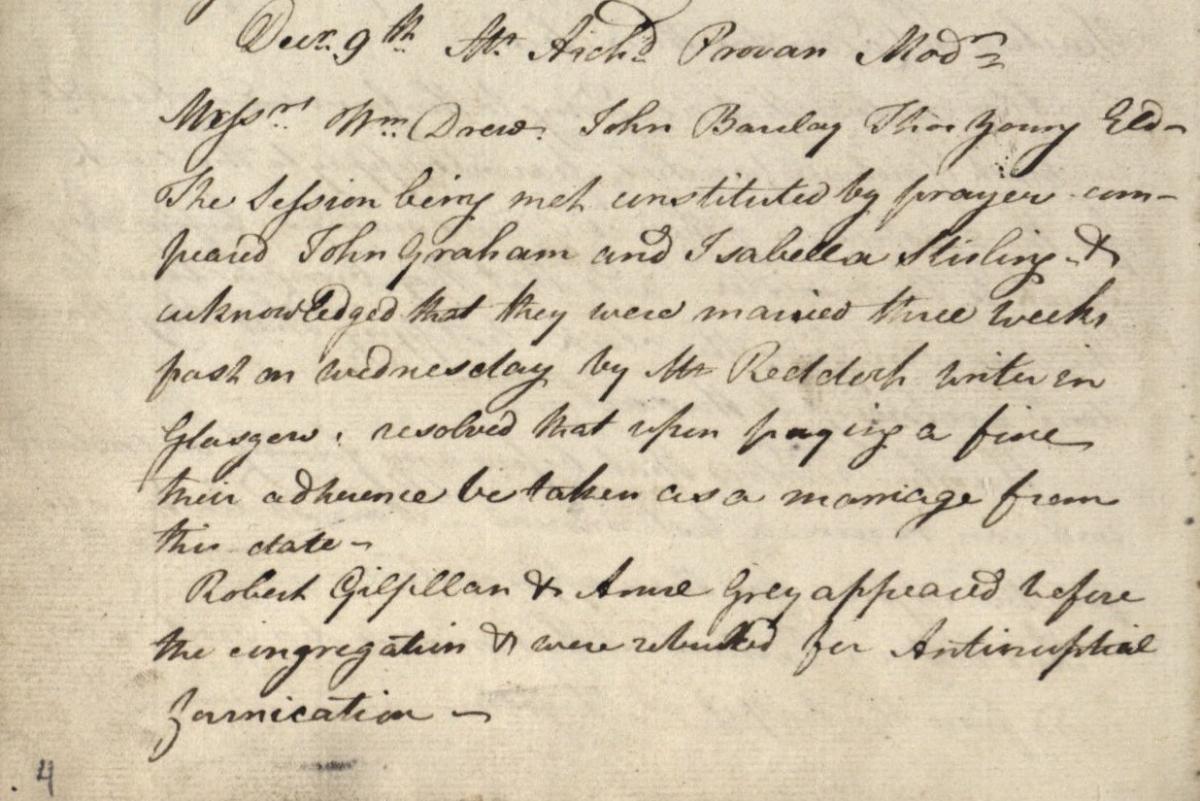 Decr. 9th Mr Archd Provan Modr
Messrs Wm Drew John Barclay Thos Young Eld-
The Session being met constituted by prayer com-
peared John Graham and Isabella Stirling &
acknowledged that they were married three weeks
past on wednesday by Mr Reddoch writer in
Glasgow. resolved that upon paying a fine
their adherence be taken as a marriage from
this date -
Robert Gilfillan & Anne Grey appeared before
the congregation & were rebuked for Antinuptial
Fornication -
4